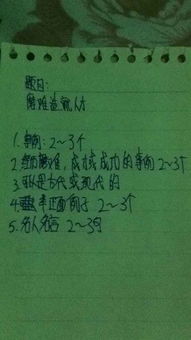 题目:
磨难造就人才
1. 事例: 2~3个
2. 经历磨难,成才或成功的事例 2~3个
3. 可以是古代或现代的
4. 正面例子 2~3个
5. 名人名言 2~3句